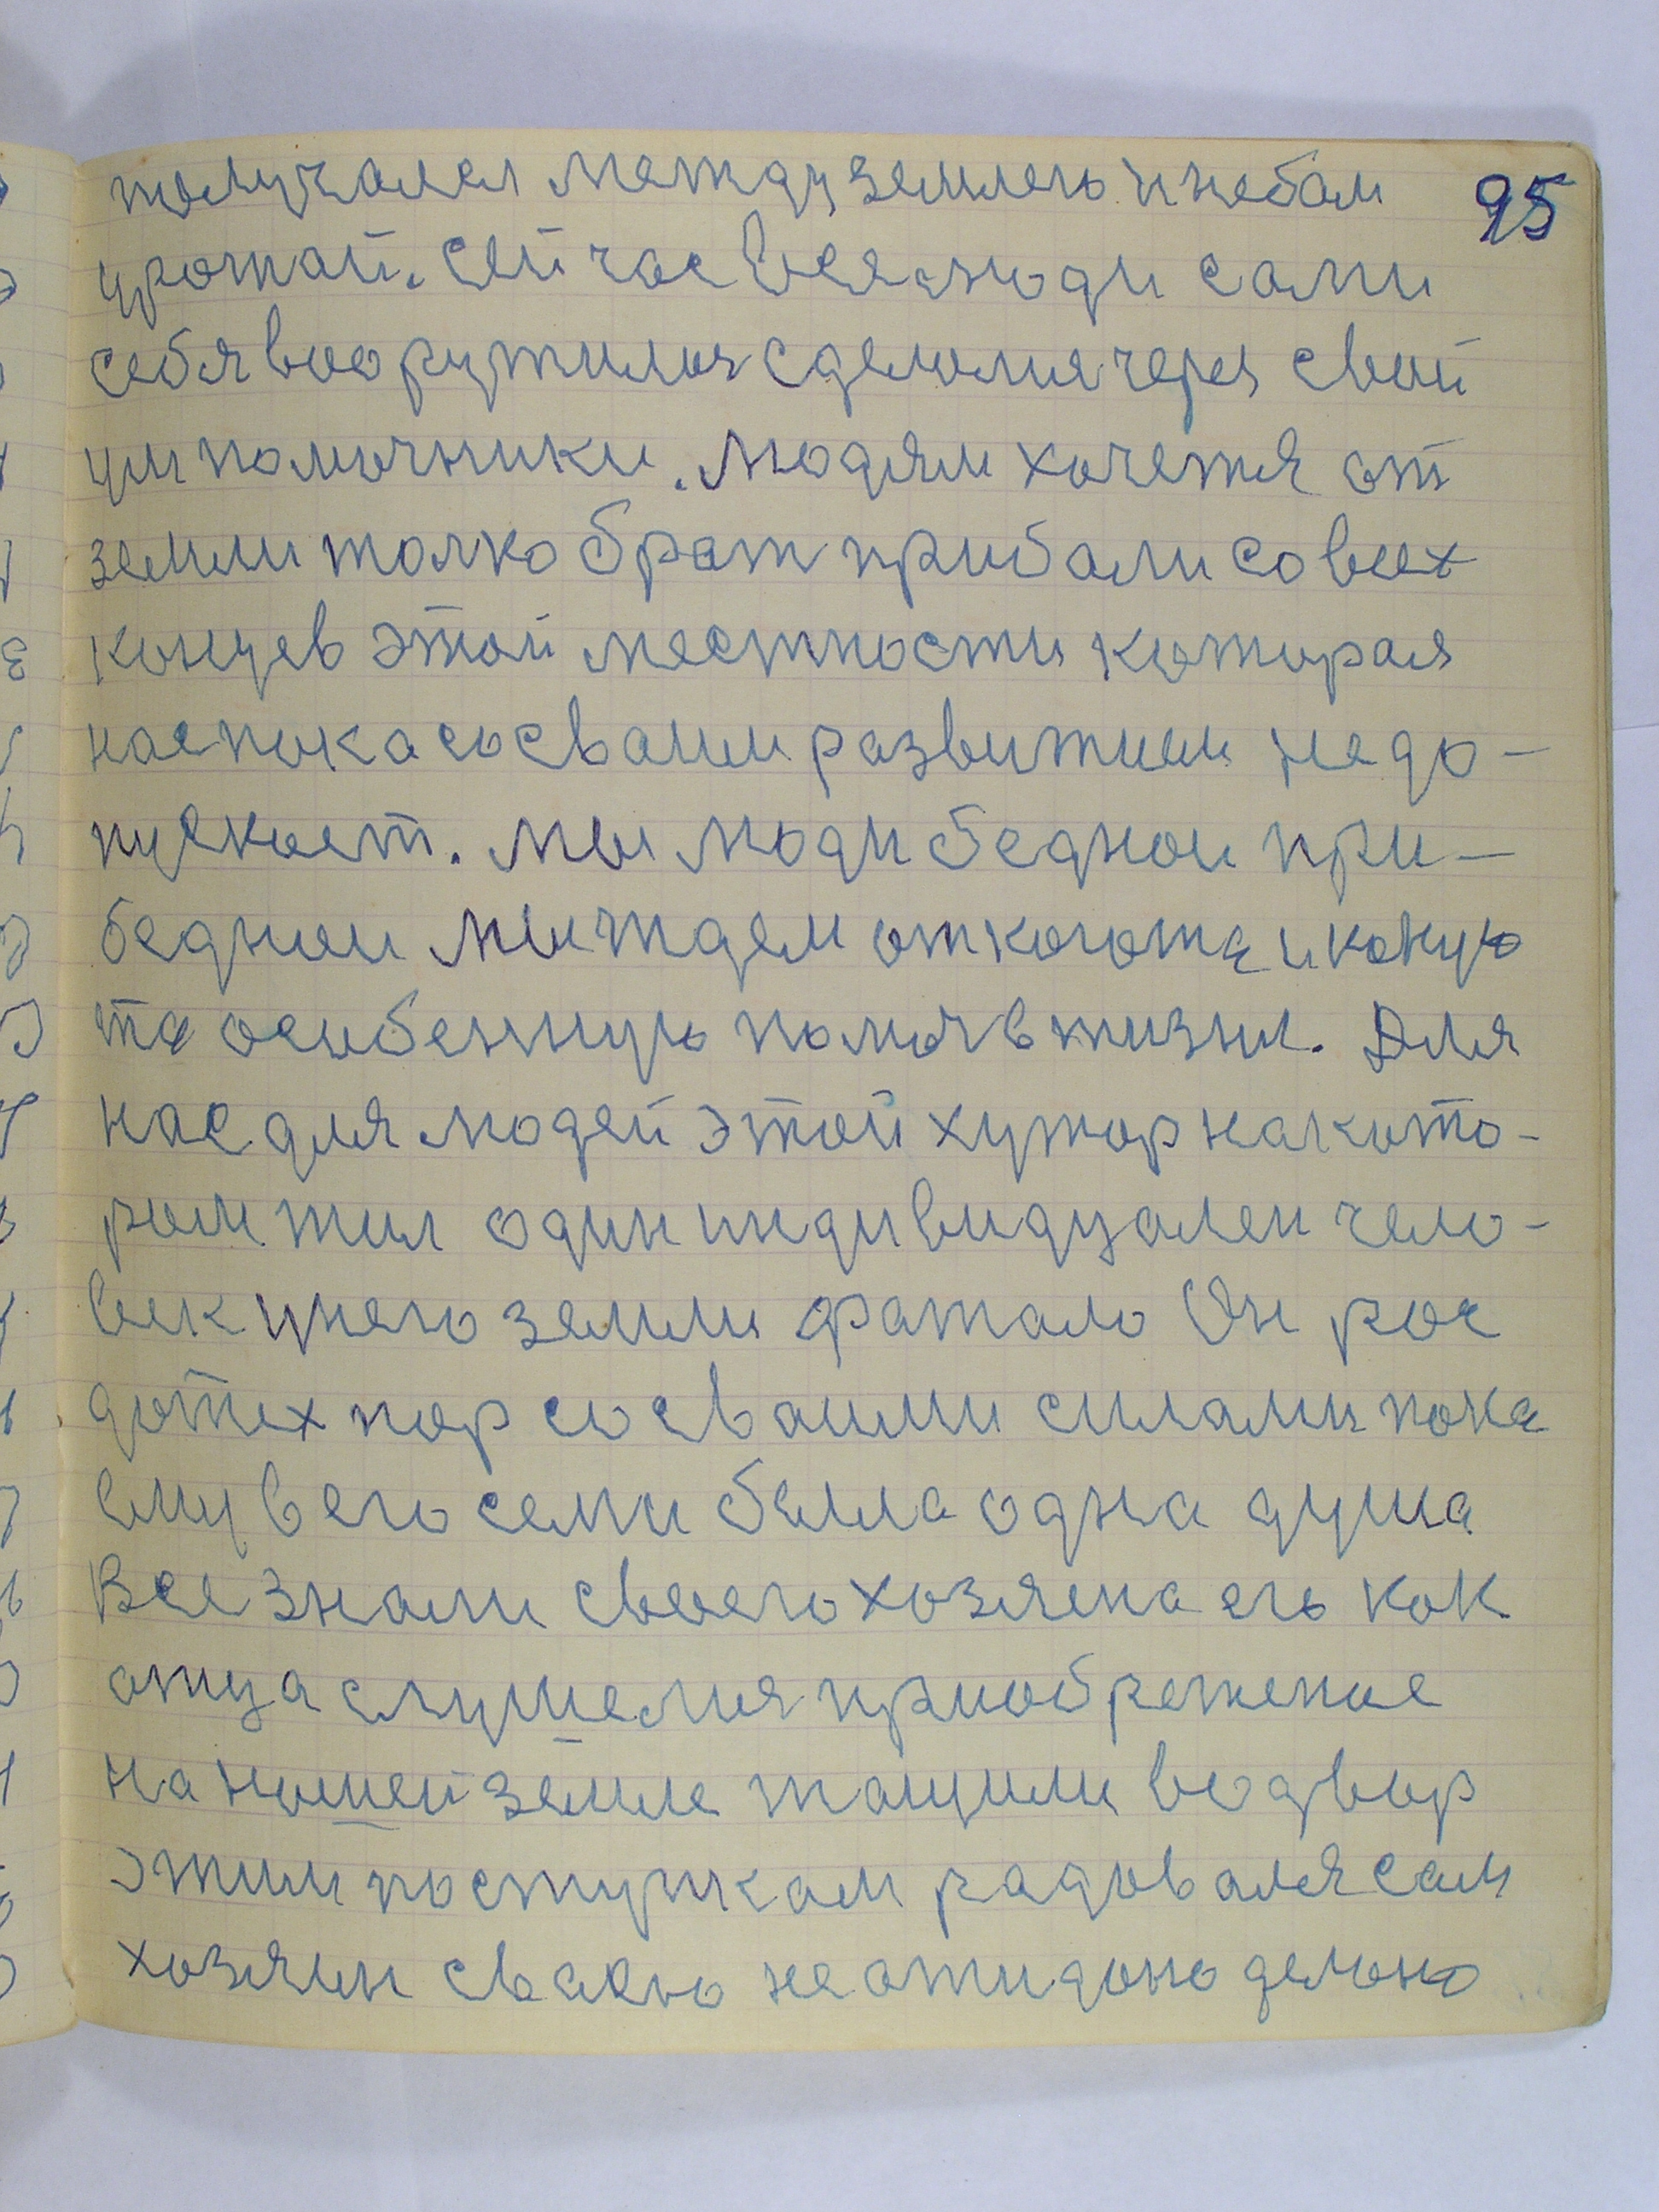 получался между землею и небом
95
урожай. Сейчас все люди сами
себя вооружилис сделолис через свой
ум помочники. Людям хочетця от
земли толко брат прибали со всех
концев этой местности которая
нас пока со своим развитием не до-
пускает. Мы люди беднои при-
беднои мы ждем от кого то и какую
то особенную помоч в жизни. Для
нас для людей этой хутор на кото-
ром жил один индивидуален чело-
век у него земли фатало Он рос
до тех пор со своими силами пока
ему в его семи была одна душа
Все знали своего хозяена его как
отца слушелися приобретеное
на ношей земле тащили во двор
этим поступкам радовался сам
хозяин сваею не ожидоно делоно